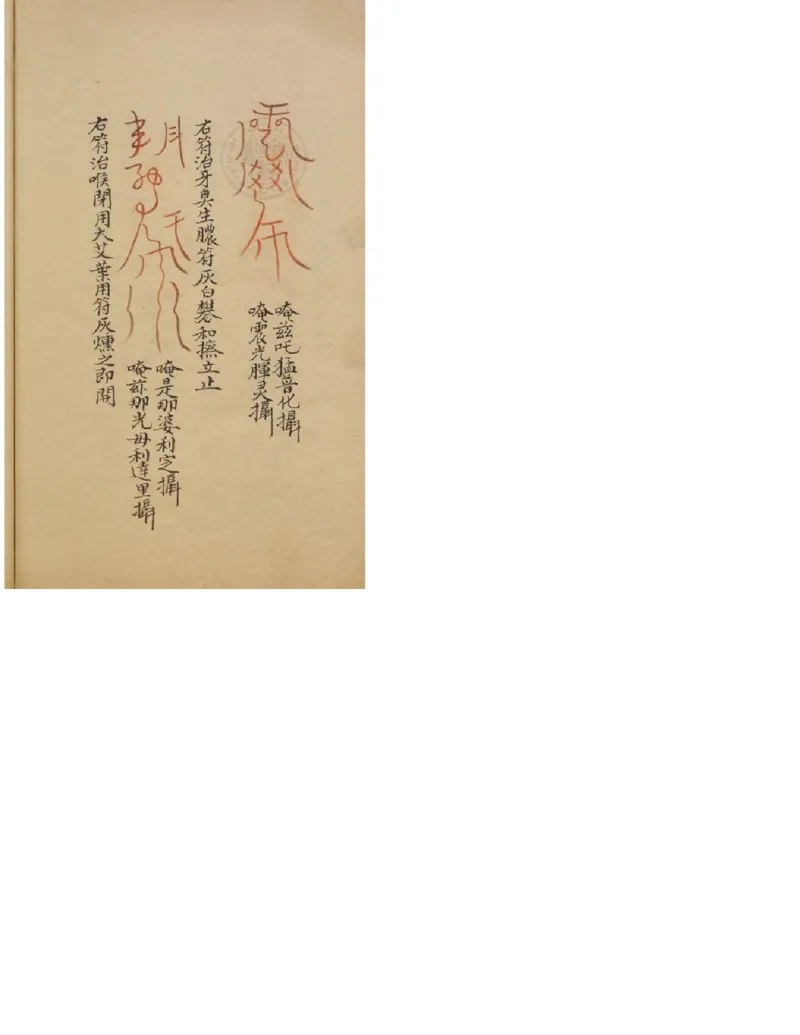 唵兹吒猛音化攝
唵震光腪灵攝
右符治牙臭生膿符灰白礬和擦立止
唵是那婆利定攝
唵兹那光毋利達里攝
右符治喉閉用大艾葉用符灰燻之即開